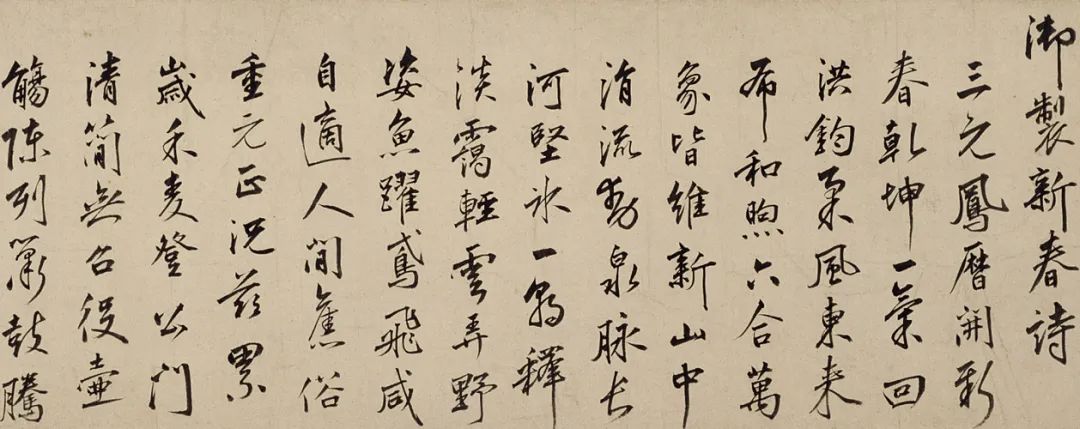 御製新春詩
三元鳳曆開新
春乾坤一氣回
洪鈞柔風東来
布和煦六合萬
象皆維新山中
涓流動泉脉長
河堅氷一朝釋
淡靄輕雲弄野
姿魚躍鳶飛咸
自適人間舊俗
重元正況茲累
歲禾麦登公門
清簡無召役壷
觴陳列簫鼓騰